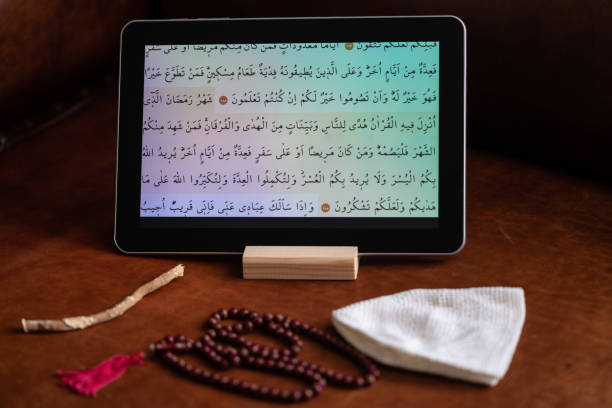 قَبْلِكُمْ لَعَلَّكُمْ تَتَّقُونَ ۝ أَيَّامًا مَعْدُودَاتٍ فَمَنْ كَانَ مِنْكُمْ مَرِيضًا أَوْ عَلٰى سَفَرٍ
فَعِدَّةٌ مِنْ أَيَّامٍ أُخَرَ وَعَلَى الَّذِينَ يُطِيقُونَهُ فِدْيَةٌ طَعَامُ مِسْكِينٍ فَمَنْ تَطَوَّعَ خَيْرًا
فَهُوَ خَيْرٌ لَهُ وَأَنْ تَصُومُوا خَيْرٌ لَكُمْ إِنْ كُنْتُمْ تَعْلَمُونَ ۝ شَهْرُ رَمَضَانَ الَّذِي
أُنْزِلَ فِيهِ الْقُرْآنُ هُدًى لِلنَّاسِ وَبَيِّنَاتٍ مِنَ الْهُدٰى وَالْفُرْقَانِ فَمَنْ شَهِدَ مِنْكُمُ
الشَّهْرَ فَلْيَصُمْهُ وَمَنْ كَانَ مَرِيضًا أَوْ عَلٰى سَفَرٍ فَعِدَّةٌ مِنْ أَيَّامٍ أُخَرَ يُرِيدُ اللّٰهُ
بِكُمُ الْيُسْرَ وَلَا يُرِيدُ بِكُمُ الْعُسْرَ وَلِتُكْمِلُوا الْعِدَّةَ وَلِتُكَبِّرُوا اللّٰهَ عَلٰى مَا
هَدٰيكُمْ وَلَعَلَّكُمْ تَشْكُرُونَ ۝ وَإِذَا سَأَلَكَ عِبَادِي عَنِّي فَإِنِّي قَرِيبٌ أُجِيبُ